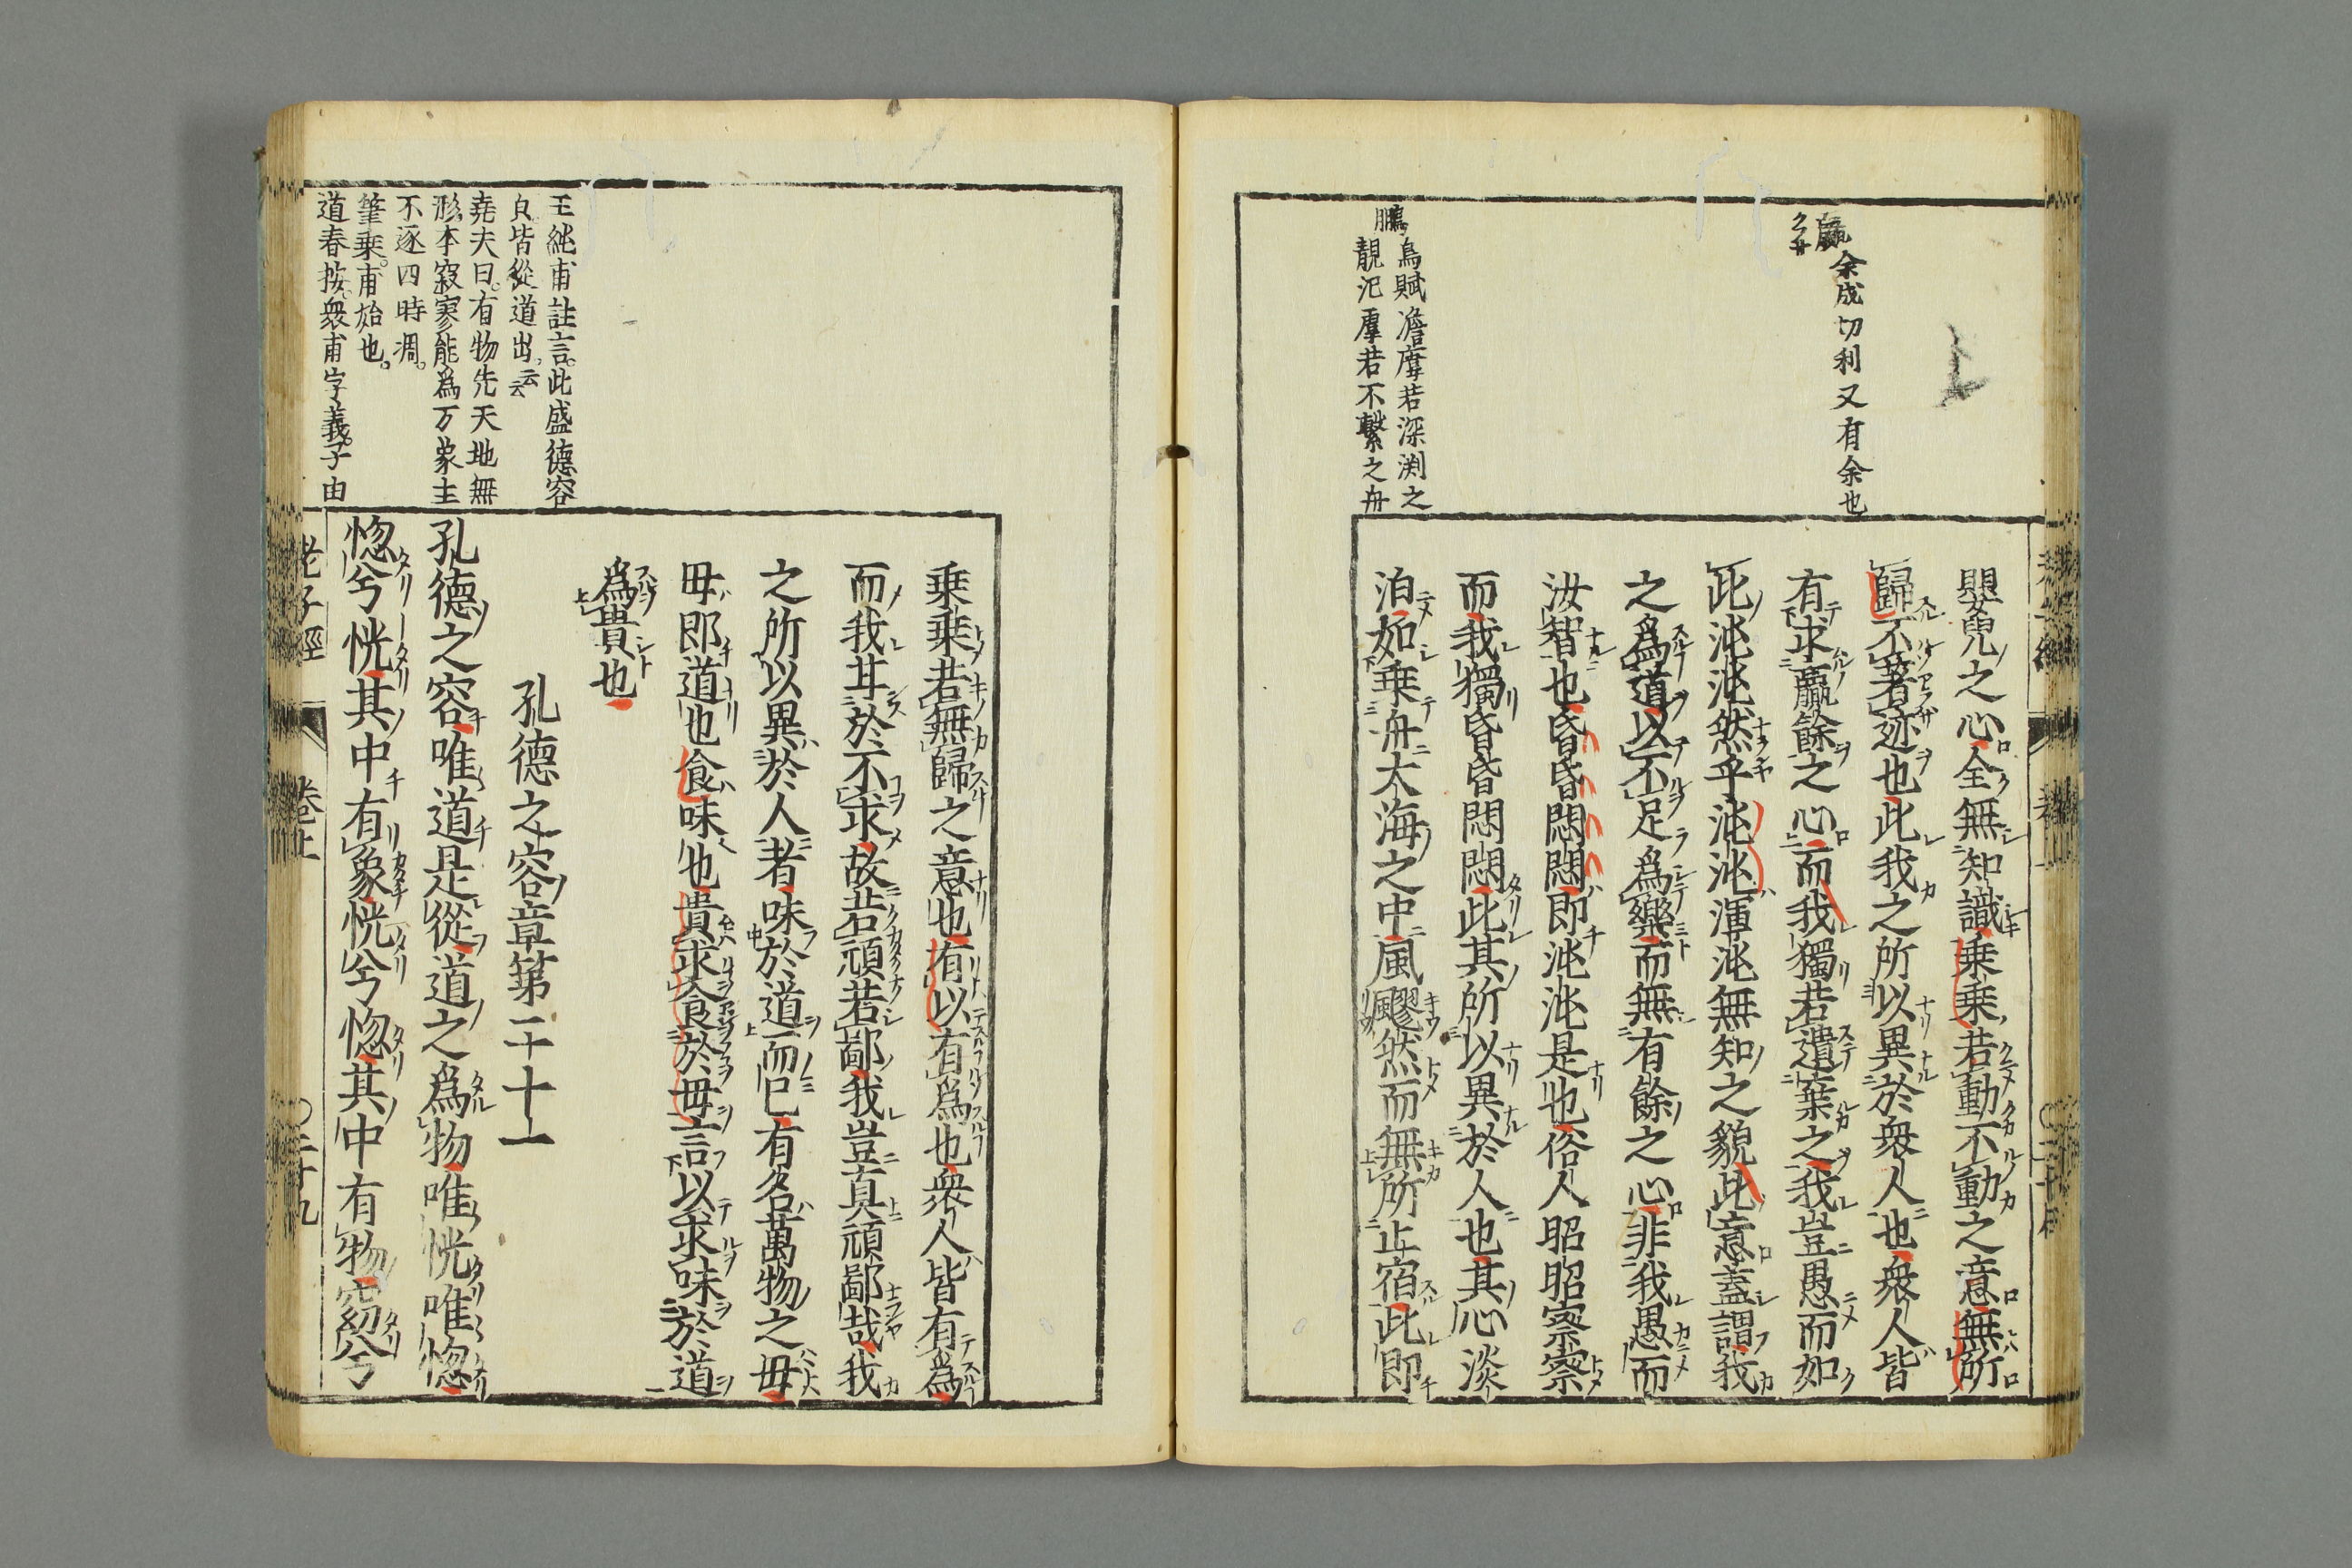 嬰兒之心全無知識乗乗若動不動之意無所
歸不著迹也此我之所以異於衆人也衆人皆
有求贏餘之心而我獨若遺棄之我豈愚而如
此沌沌然乎沌沌渾沌無知之貌此意蓋謂我
之爲道以不足爲樂而無有餘之心非我愚而
汝智也昏昏悶悶即沌沌是也俗人昭昭察察
而我獨昏昏悶悶此其所以異於人也其心淡
泊如乗舟大海之中風飂然而無所止宿此即
贏余成切利又有余也
鵩鳥賦澹虖若深渕之
靚汜虖若不繋之舟
乗乗若無歸之意也有以有爲也衆人皆有爲
而我甘於不求故若頑若鄙我豈真頑鄙哉我
之所以異於人者味於道而已有名萬物之毋
毋即道也食味也貴求食於毋言以求味於道
爲貴也
孔德之容章第二十一
孔德之容唯道是從道之爲物唯恍唯惚
惚兮恍其中有象恍兮惚其中有物窈兮
王純甫註言此盛德容
皃皆從道出云云
堯夫曰有物先天地無
形本寂寥能爲万象主
不逐四時凋
筆乗甫始也
道春按衆甫字義子由
老子經 卷上 〇二十九